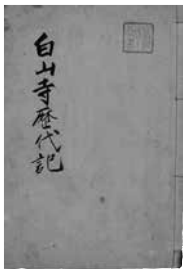 白山寺歴代記